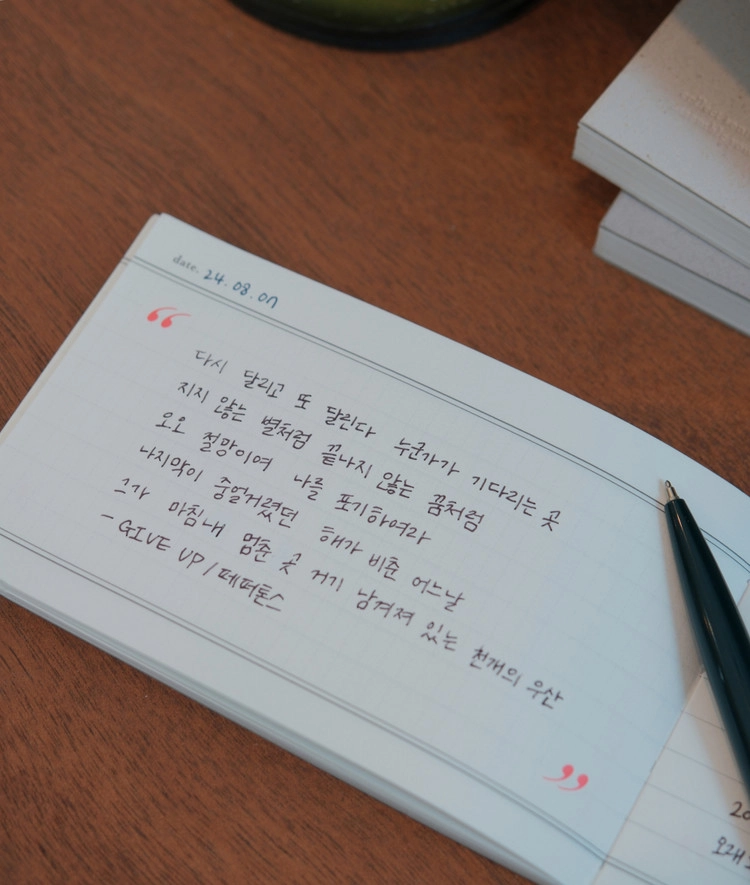 date. 24.08.07
“
다시 달리고 또 달린다 누군가가 기다리는 곳
지지 않는 별처럼 끝나지 않는 꿈처럼
오오 절망이여 나를 포기하여라
나지막이 중얼거렸던 해가 비춘 어느날
그가 마침내 멈춘 곳 거기 남겨져 있는 천개의 우산
- GIVE UP / 페퍼톤스
”